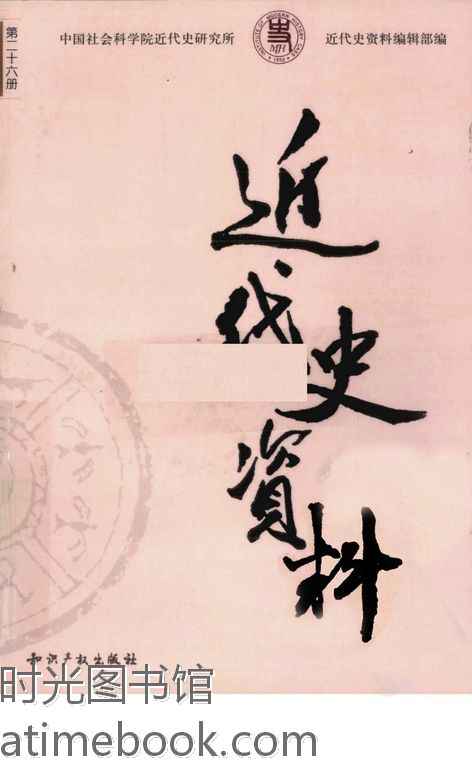 第二十六册
中国社会科学院近代史研究所
近代史资料编辑部编
近代史资料
知识产权出版社
时光图书馆
atimebook.com